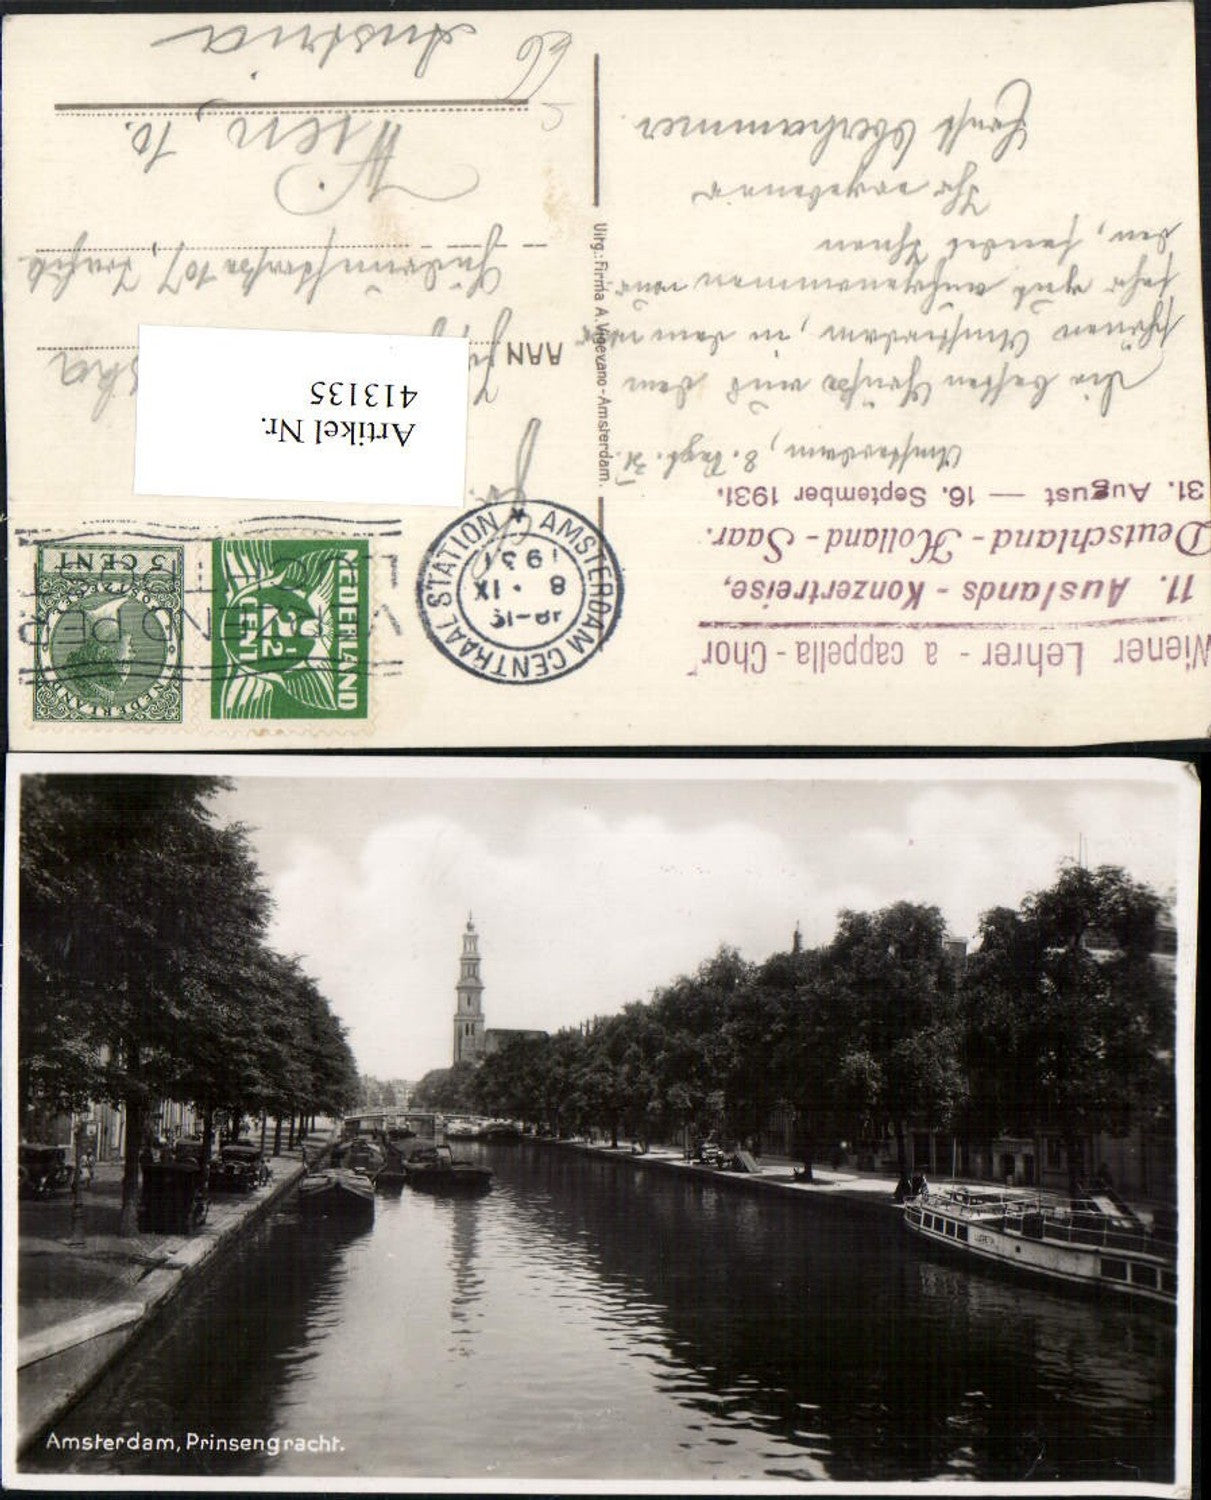 Wiener Lehrer - a cappella - Chor
11. Auslands - Konzertreise,
Deutschland - Holland - Saar.
31. August — 16. September 1931.
Amsterdam, 8. Sept. 31.
Die besten Grüße aus dem
schönen Amsterdam, in dem wir
sehr gut aufgenommen wur-
den, sendet Ihnen
Ihr ergebener
Ernst Oberhammer.
Uitg.: Firma A. Vigevano - Amsterdam.
NEDERLAND
2½
CENT
NEDERLAND
POSTZEGEL
5 CENT
AMSTERDAM CENTRAAL STATION
8 IX
1931
AAN
107
Wien, 10.
Austria
Artikel Nr.
413135
Amsterdam, Prinsengracht.